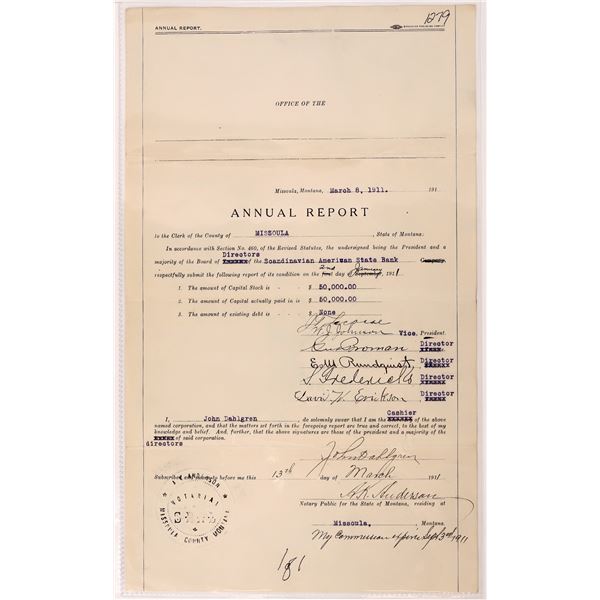 1279
ANNUAL REPORT.
OFFICE OF THE
Missoula, Montana, March 8, 1911. 191
ANNUAL REPORT
to the Clerk of the County of MISSOULA , State of Montana:
In accordance with Section No. 460, of the Revised Statutes, the undersigned being the President and a
Directors
majority of the Board of xxxxxx of the Scandinavian American State Bank Company,
2nd January
respectfully submit the following report of its condition on the first day of , 1911
1. The amount of Capital Stock is - - - $ 50,000.00
2. The amount of Capital actually paid in is - $ 50,000.00
3. The amount of existing debt is - - - $ None
Johnson Vice President.
Broman Director
xxxxx
E M Rundquist, Director
xxxxx
Fredericks Director
xxxxx
W. Erickson Director
xxxxx
Cashier
I, John Dahlgren do solemnly swear that I am the xxxxx of the above
named corporation, and that the matters set forth in the foregoing report are true and correct, to the best of my
knowledge and belief. And, further, that the above signatures are those of the president and a majority of the
directors
xxxxx of said corporation.
John Dahlgren
Subscribed and sworn to before me this 13th day of March 1911
A. K. Anderson
Notary Public for the State of Montana, residing at
Missoula, , Montana.
My Commission expires Sept 3rd 1911
NOTARIAL
SEAL
MISSOULA COUNTY MONTANA
181